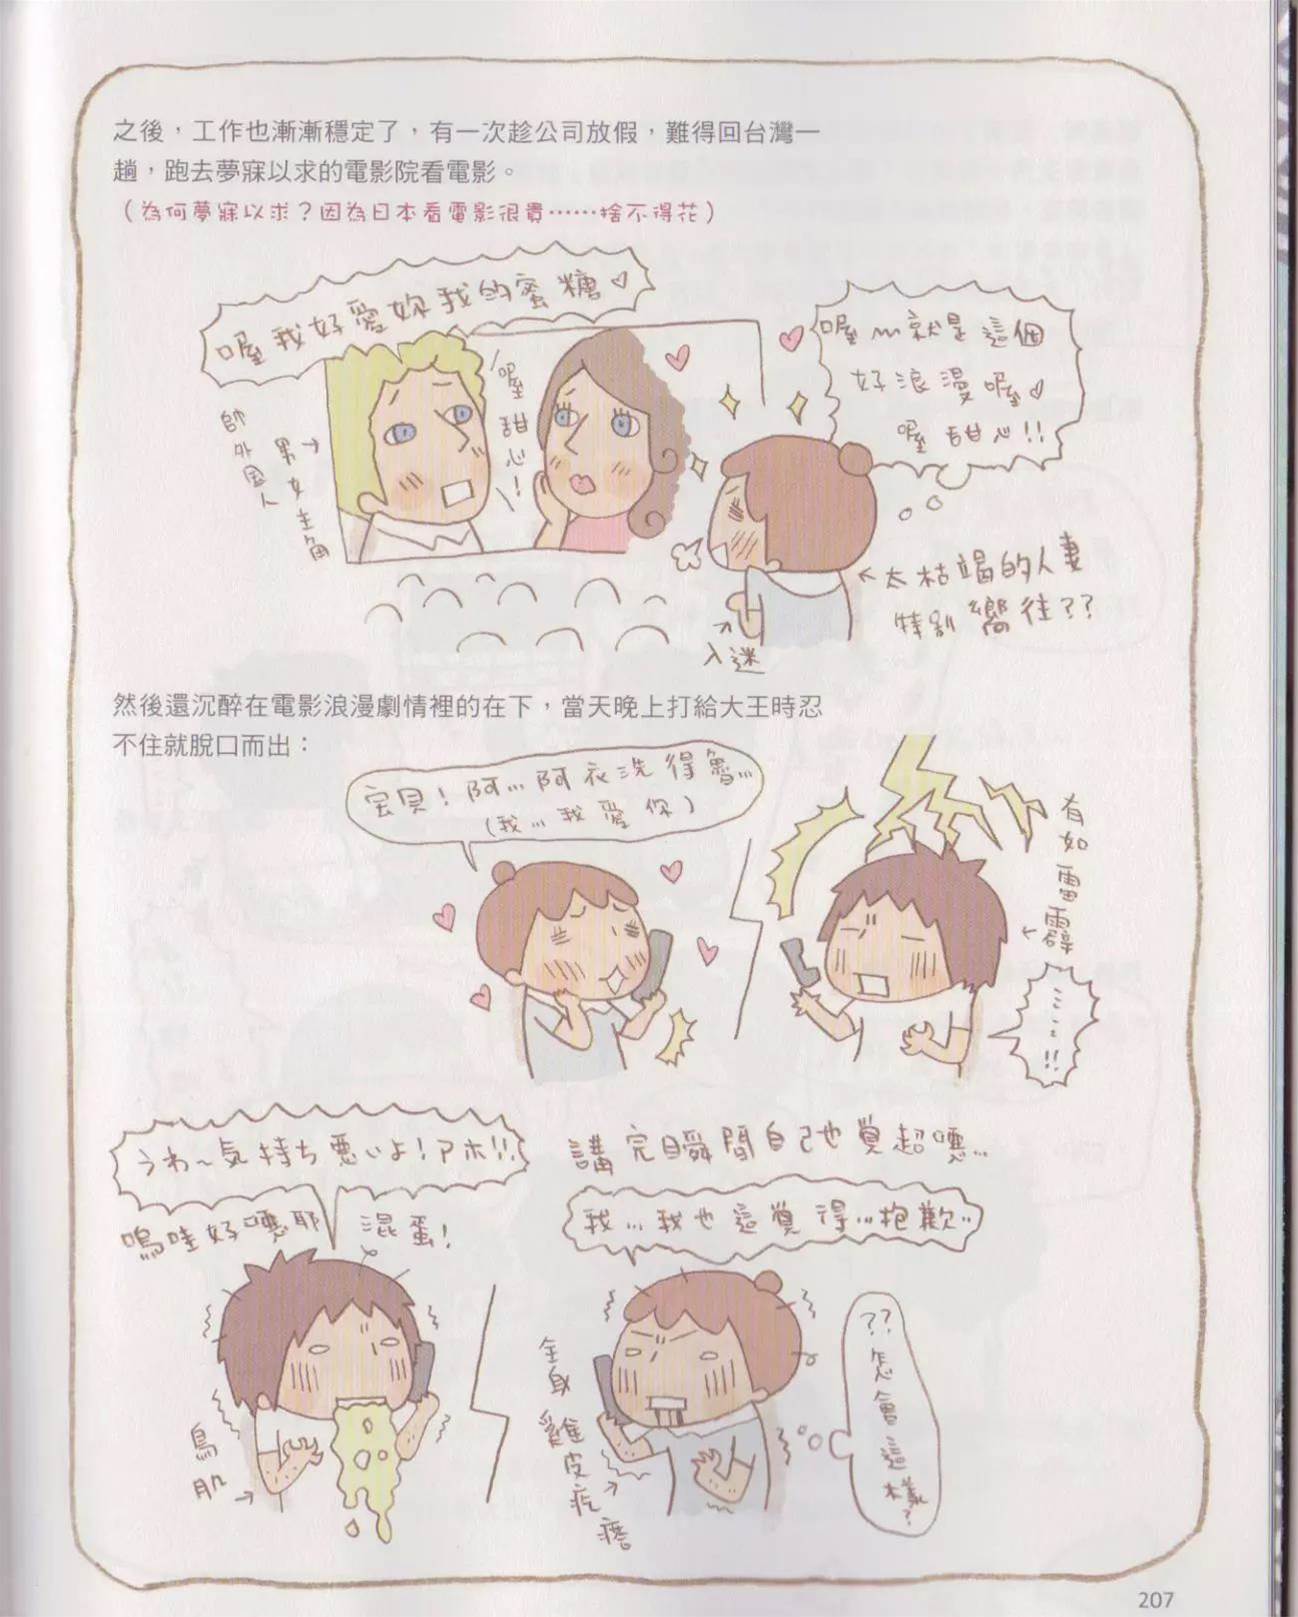 之後，工作也漸漸穩定了，有一次趁公司放假，難得回台灣一
趟，跑去夢寐以求的電影院看電影。
（為何夢寐以求？因為日本看電影很貴⋯⋯捨不得花）
喔我好愛妳我的蜜糖♡
喔甜心！
帥外国人
男女主角
喔～就是這個
好浪漫喔♡
喔甜心!!
←太枯竭的人妻
特別嚮往??
入迷
然後還沉醉在電影浪漫劇情裡的在下，當天晚上打給大王時忍
不住就脫口而出：
宝貝！阿...阿衣洗得魯...
（我...我愛你）
有如雷霹
うわ～気持ち悪いよ！アホ!!
嗚哇好噁耶 混蛋！
講完瞬間自己也覺超噁...
我...我也這覺得...抱歉...
鳥肌
全身雞皮疙瘩
??怎會這樣?
207